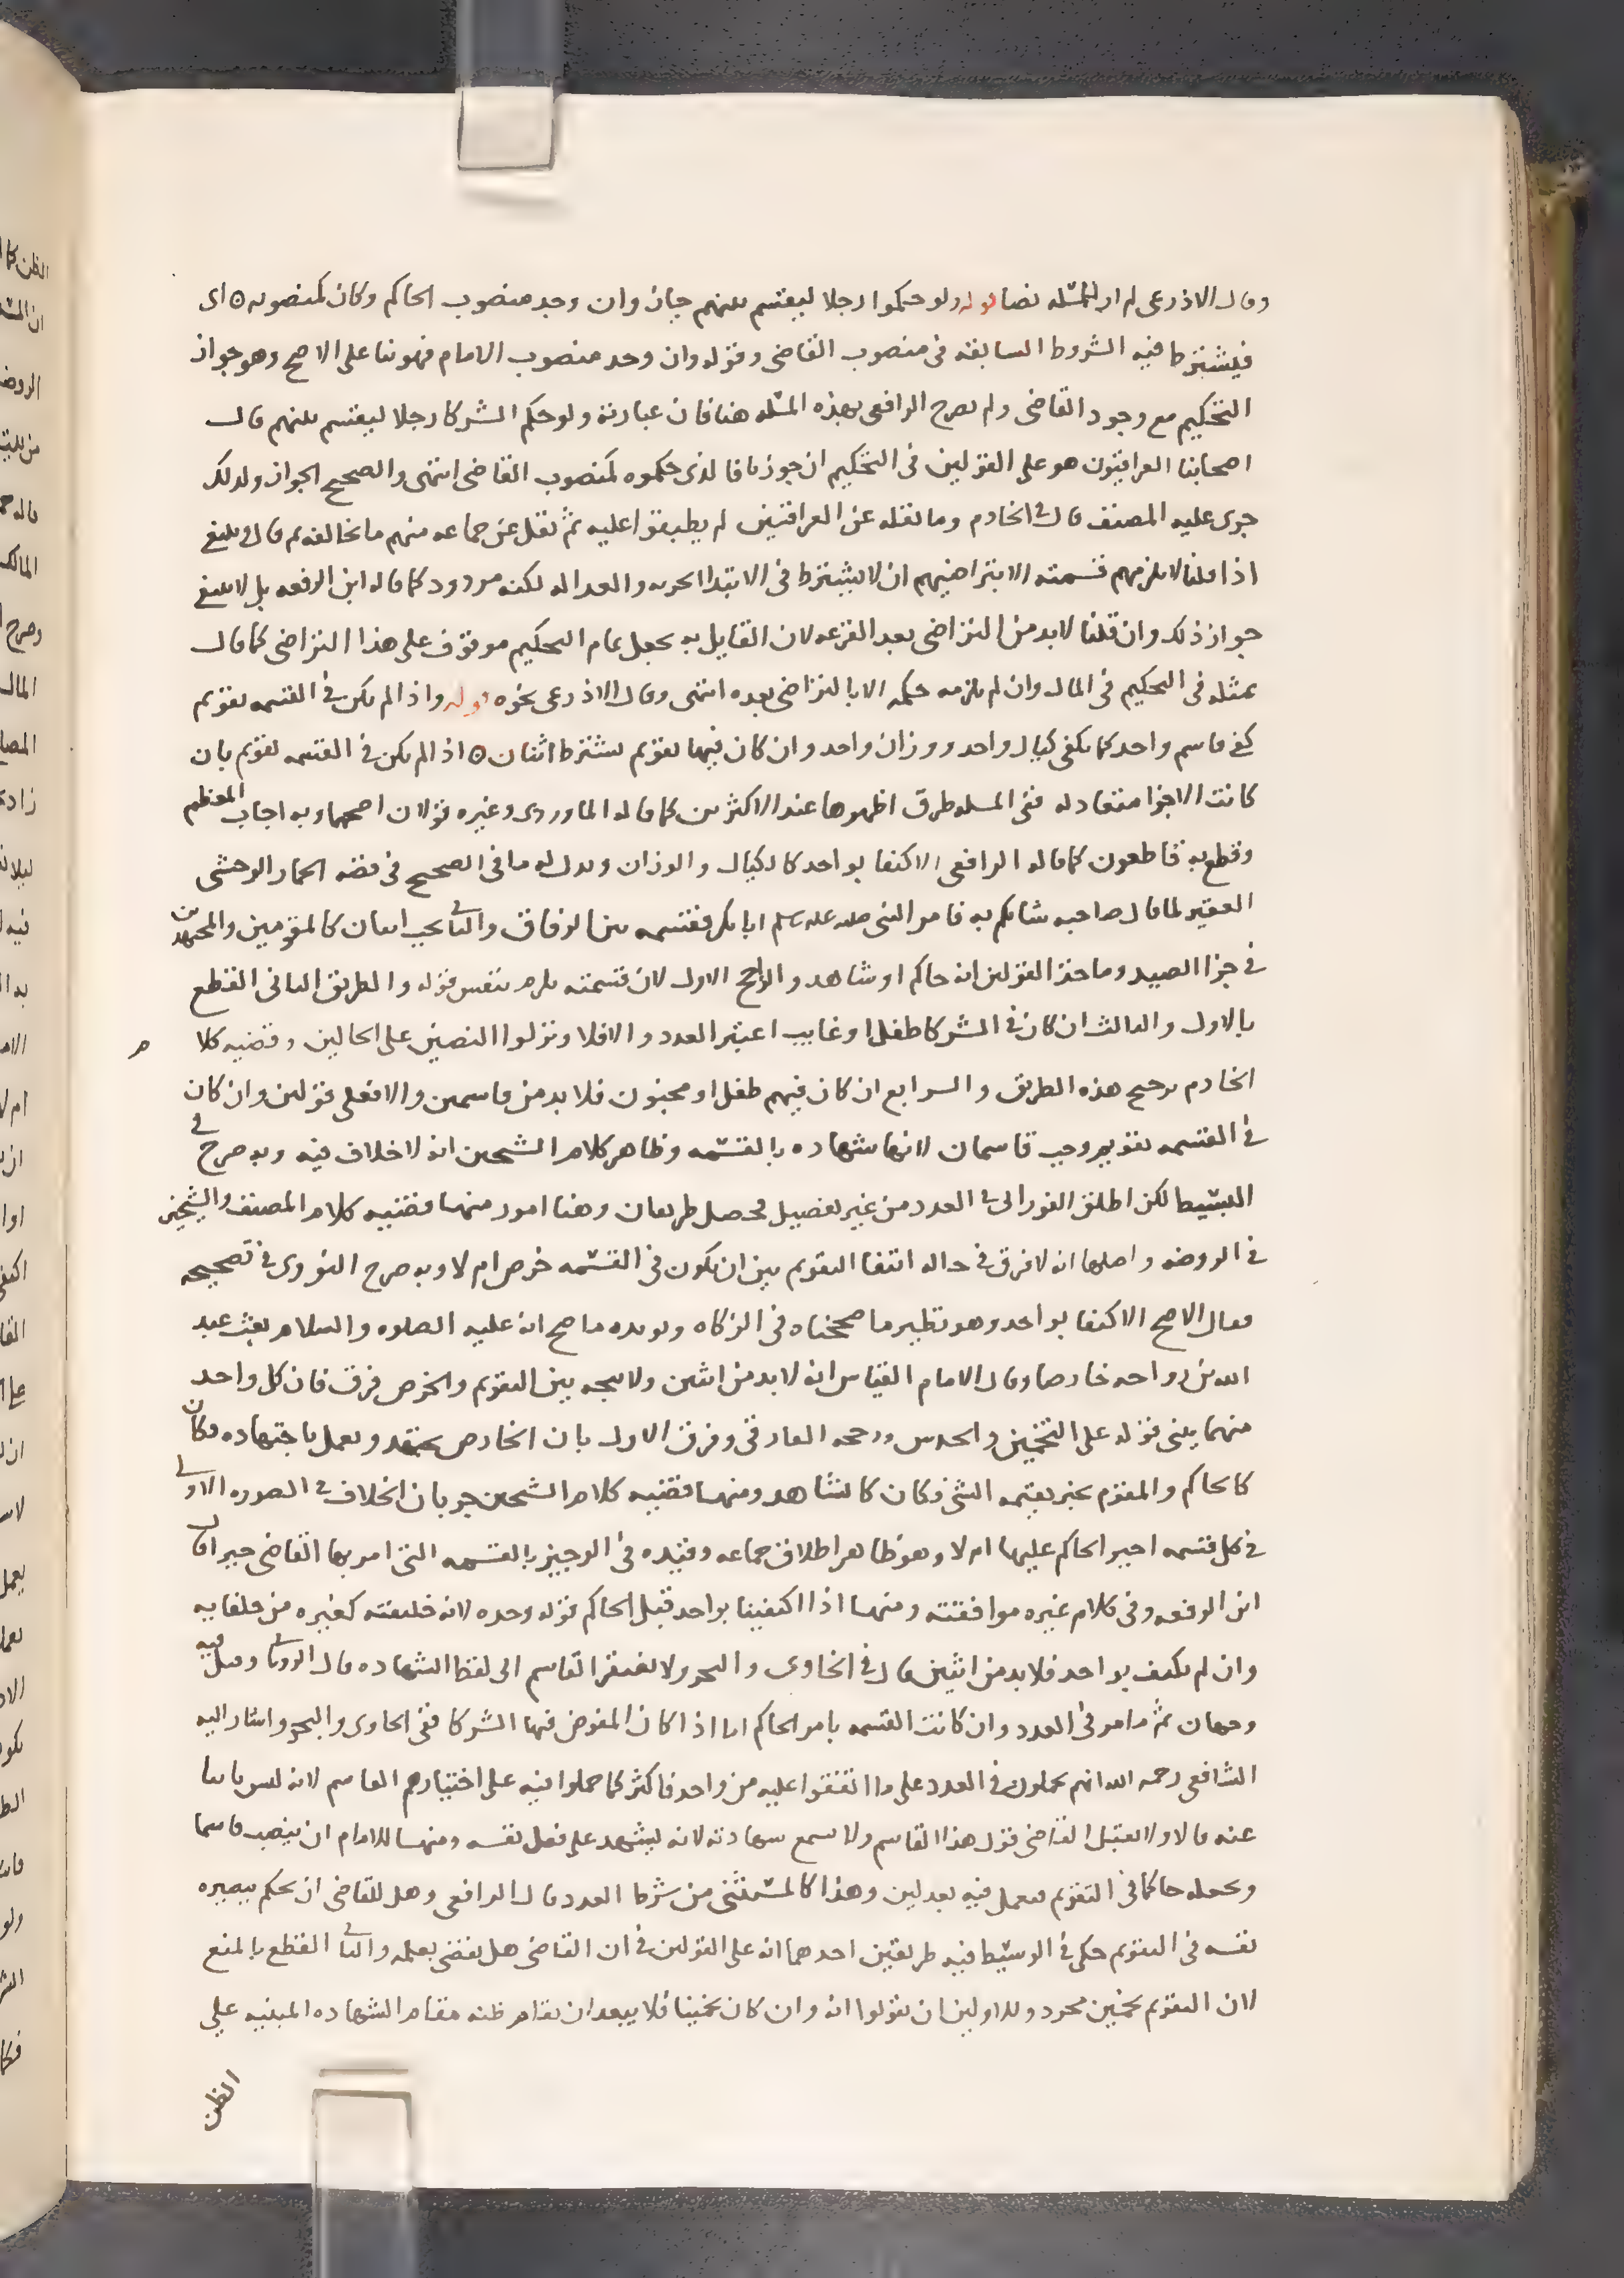 وقال الاذرعى لم ار للمسله نصا قوله ولو حكموا رجلا ليقسم بينهم جاز وان وجد منصوب الحاكم وكان كمنصوبه ⊙ اى
فيشترط فيه الشروط السابقه فى منصوب القاضى وقوله وان وجد منصوب الامام فهو بنا على الاصح وهو جواز
التحكيم مع وجود القاضى ولم يصرح الرافعى بهذه المسله هنا فان عبارته ولو حكم الشركا رجلا ليقسم بينهم قال
اصحابنا العراقيون هو على القولين فى التحكيم ان جوزنا فالذى حكموه كمنصوب القاضى انتهى والصحيح الجواز ولذلك
جرى عليه المصنف قال فى الخادم وما نقله عن العراقيين لم يطبقوا عليه ثم نقل عن جماعه منهم ما يخالفه ثم قال وينبغى
اذا قلنا لا يلزمهم قسمته الا بتراضيهم ان لا يشترط فى الابتدا الحريه والعداله لكنه مردود كما قاله ابن الرفعه بل لا ينبغى
جواز ذلك وان قلنا لا بد من التراضى بعد القرعه لان القايل به يجعل تمام التحكيم موقوف على هذا التراضى كما قال
بمثله فى التحكيم فى المال وان لم يلزمه حكمه الا بالتراضى بعده انتهى وقال الاذرعى نحوه قوله واذا لم يكن فى القسمه تقويم
كفى قاسم واحد كما يكفى كيال واحد ووزان واحد وان كان فيها تقويم يشترط اثنان ⊙ اذا لم يكن فى القسمه تقويم بان
كانت الاجزا متعادله ففى المسله طرق اظهرها عند الاكثرين كما قاله الماوردى وغيره قولان اصحهما وبه اجاب المعظم
وقطع به قاطعون كما قاله الرافعى الاكتفا بواحد كالكيال والوزان ويدل له ما فى الصحيح فى قصه الحمار الوحشى
العقير لما قال صاحبه شانكم به فامر النبى صلى الله عليه وسلم ابا بكر فقسمه بين الرفاق والثانى يجب اثنان كالمقومين والمجتهدين
فى جزا الصيد وماخذ القولين انه حاكم او شاهد والراجح الاول لان قسمته تلزم بنفس قوله والطريق الثانى القطع
بالاول والثالث ان كان فى الشركا طفل او غايب اعتبر العدد والا فلا ونزلوا النصين على الحالين وقضيه كلام
الخادم ترجيح هذه الطريق والرابع ان كان فيهم طفل او مجنون فلا بد من قاسمين والا فعلى قولين وان كان
فى القسمه تقويم وجب قاسمان لانها شهاده بالقسمه وظاهر كلام الشيخين انه لا خلاف فيه وبه صرح فى
البسيط لكن اطلق الفورانى فى العدد من غير تفصيل فحصل طريقان وهنا امور منها قضيه كلام المصنف والشيخين
فى الروضه واصلها انه لا فرق فى حاله انتفا التقويم بين ان يكون فى القسمه خرص ام لا وبه صرح النووى فى تصحيحه
فقال الاصح الاكتفا بواحد وهو نظير ما صححناه فى الزكاه ويويده ما صح انه عليه الصلوه والسلام بعث عبد
الله بن رواحه خارصا وقال الامام القياس انه لا بد من اثنين ولا يتجه بين التقويم والخرص فرق فان كل واحد
منهما يبنى قوله على التخمين والحدس ورجحه الفارقى وفرق الاول بان الخارص يجتهد ويعمل باجتهاده فكان
كالحاكم والمقوم يخبر بقيمه الشى فكان كالشاهد ومنها قضيه كلام الشيخين جريان الخلاف فى الصوره الاولى
فى كل قسمه اجبر الحاكم عليها ام لا وهو ظاهر اطلاق جماعه وقيده فى الوجيز بالقسمه التى امر بها القاضى جبرا قال
ابن الرفعه وفى كلام غيره موافقته ومنها اذا اكتفينا بواحد قبل الحاكم قوله وحده لانه خليفته كغيره من خلفايه
وان لم يكتف بواحد فلا بد من اثنين قال فى الحاوى والبحر ولا يفتقر القاسم الى لفظ الشهاده قال الرويانى وقيل فيه
وجهان ثم ما مر فى العدد وان كانت القسمه بامر الحاكم اما اذا كان المفوض فيها الشركا ففى الحاوى والبحر واشار اليه
الشافعى رحمه الله انهم يحملون فى العدد على ما اتفقوا عليه من واحد فاكثر كما حملوا فيه على اختيارهم القاسم لانه ليس نايبا
عنه قالا ولا يقبل القاضى قول هذا القاسم ولا يسمع شهادته لانه يشهد على فعل نفسه ومنها للامام ان ينصب قاسما
ويجعله حاكما فى التقويم فيعمل فيه بعدلين وهذا كالمستثنى من شرط العدد قال الرافعى وهل للقاضى ان يحكم ببصيره
نفسه فى التقويم حكى فى الوسيط فيه طريقين احدهما انه على القولين فى ان القاضى هل يقضى بعلمه والثانى القطع بالمنع
لان التقويم تخمين مجرد وللاولين ان يقولوا انه وان كان تخمينا فلا يبعد ان يقام ظنه مقام الشهاده المبنيه على
الظن